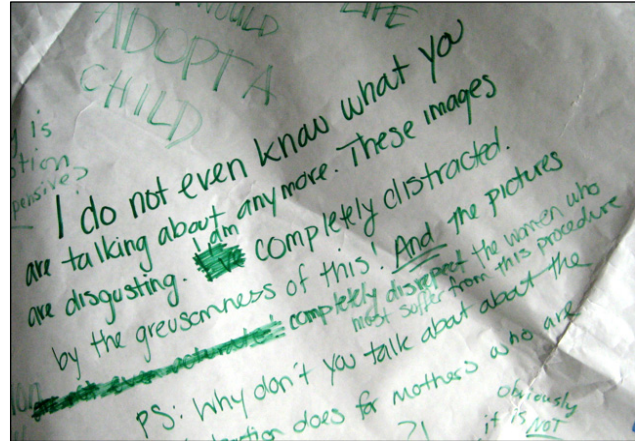 WOULD
LIFE
ADOPT A
CHILD
is
I do not even know what you
are talking about anymore. These images
are disgusting. I am completely distracted.
by the greusomness of this! And the pictures
completely disrepect the women who
most suffer from this procedure
PS: Why don't you talk about about the
does for mothers who are
?!
obviously
it is NOT